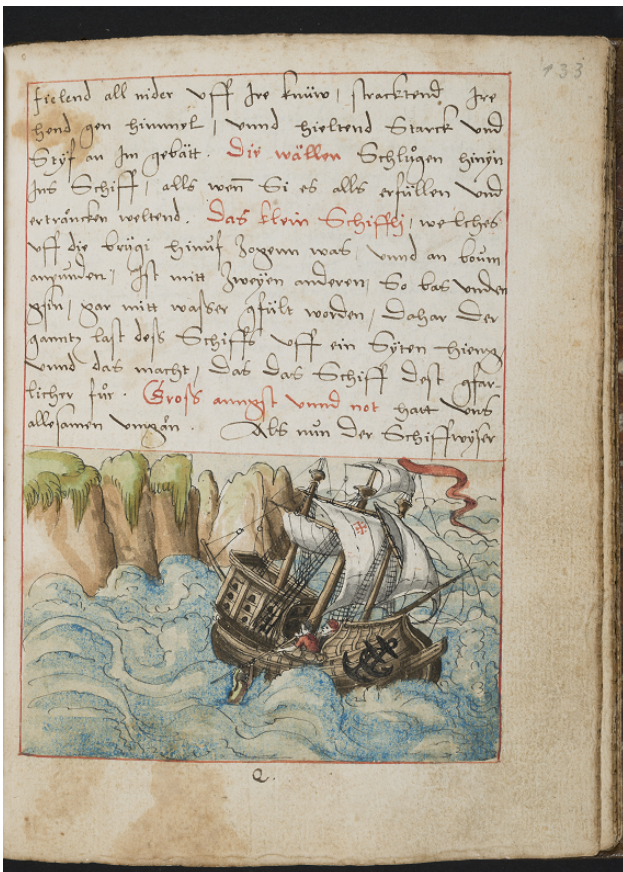 133
fielend all nider uff Ire knüw, stracktend Ire
hend gen himmel, unnd hieltend Starck und
Styf an Im gebätt. Die wällen Schlůgen hinyn
Ins Schiff, alls wen̄ Si es alls erfüllen und
erträncken weltend. Das klein Schiffli, welches
uff die brügi hinuf zogenn was, unnd an boum
anpunden, Ist mitt zweyen anderen, So bas unden
gsin, gar mitt wasser gfült worden, Dahar Der
ganntz last dess Schiffs uff ein Syten hieng,
unnd das macht, Das Das Schiff Dest gfar-
licher fůr. Gross anngst unnd not hatt uns
allesamen umgän. Als nun Der Schiffwyser
Q.